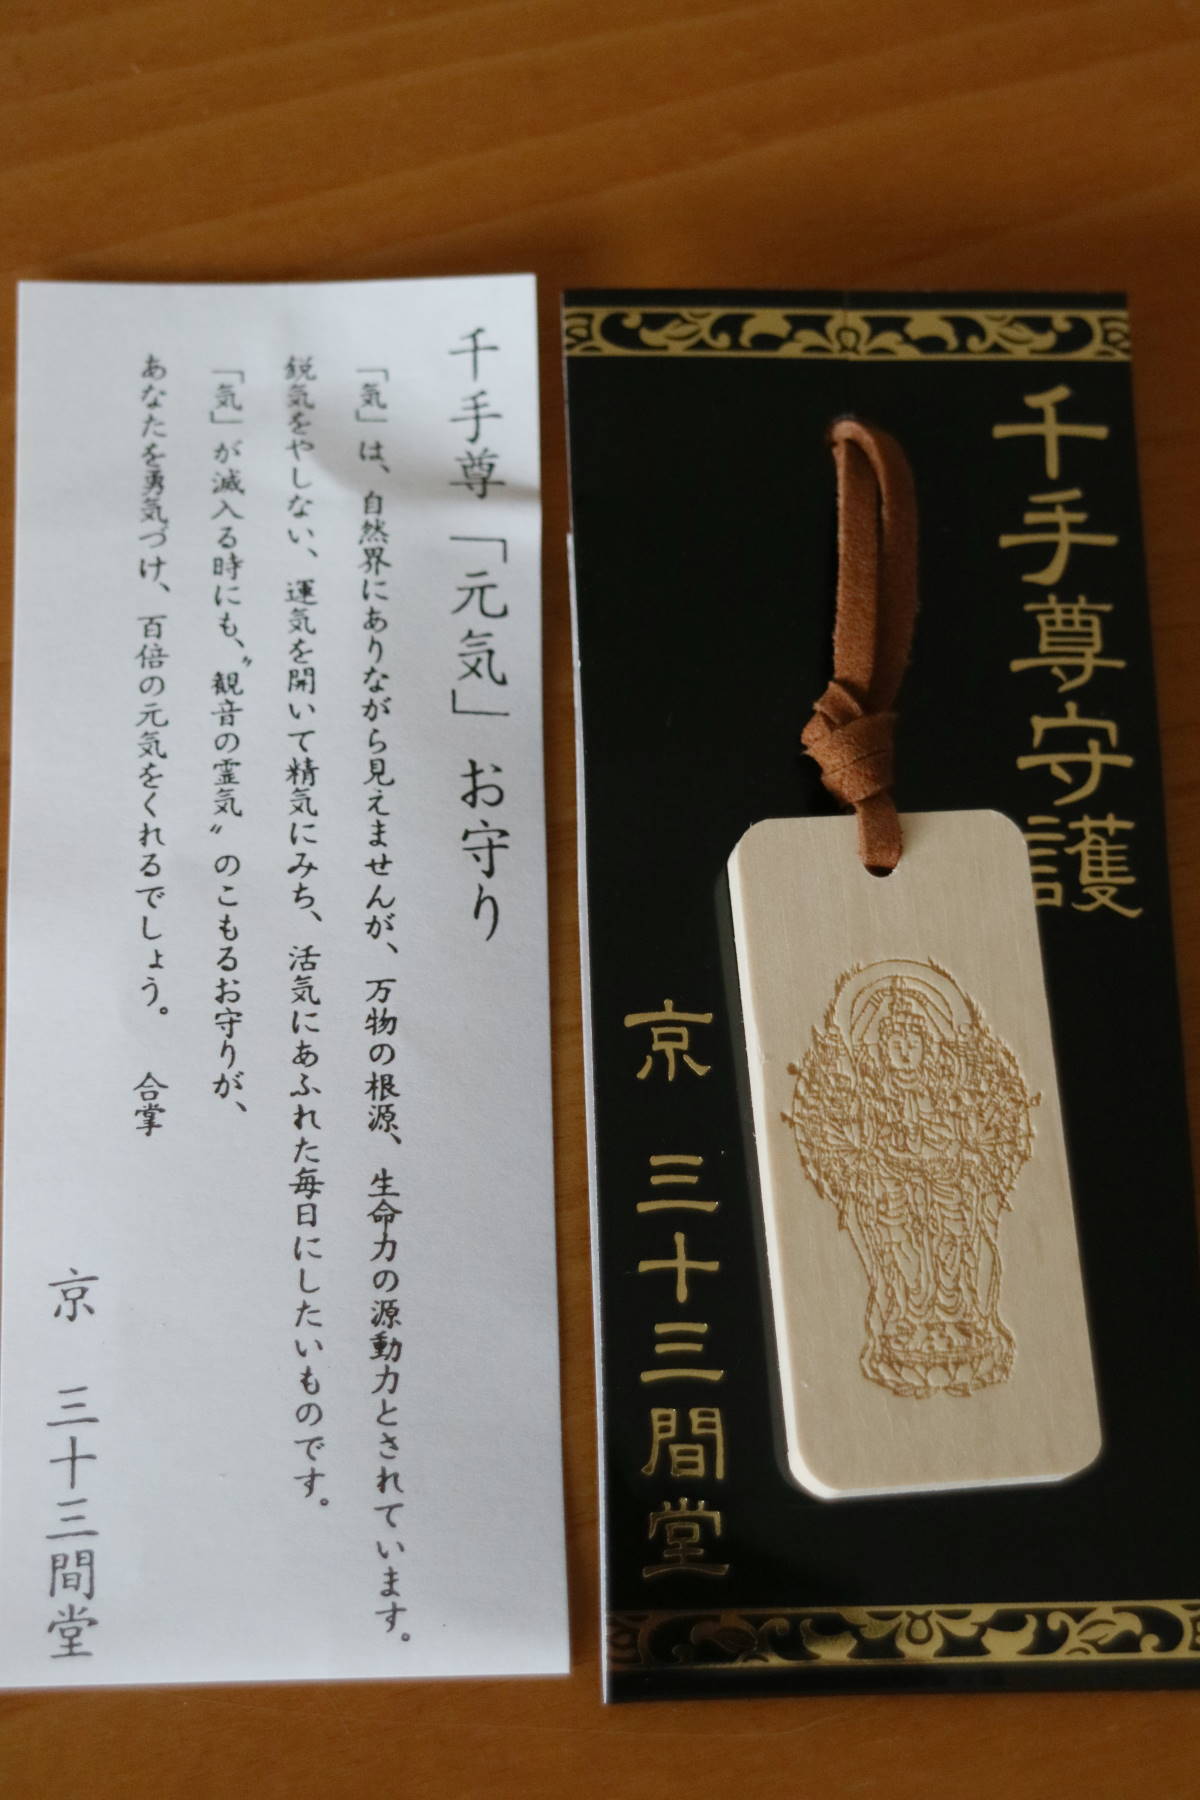 千手尊「元気」お守り
「気」は、自然界にありながら見えませんが、万物の根源、生命力の源動力とされています。
鋭気をやしない、運気を開いて精気にみち、活気にあふれた毎日にしたいものです。
「気」が滅入る時にも、〝観音の霊気〟のこもるお守りが、
あなたを勇気づけ、百倍の元気をくれるでしょう。　合掌
京　三十三間堂
千手尊守護
京　三十三間堂